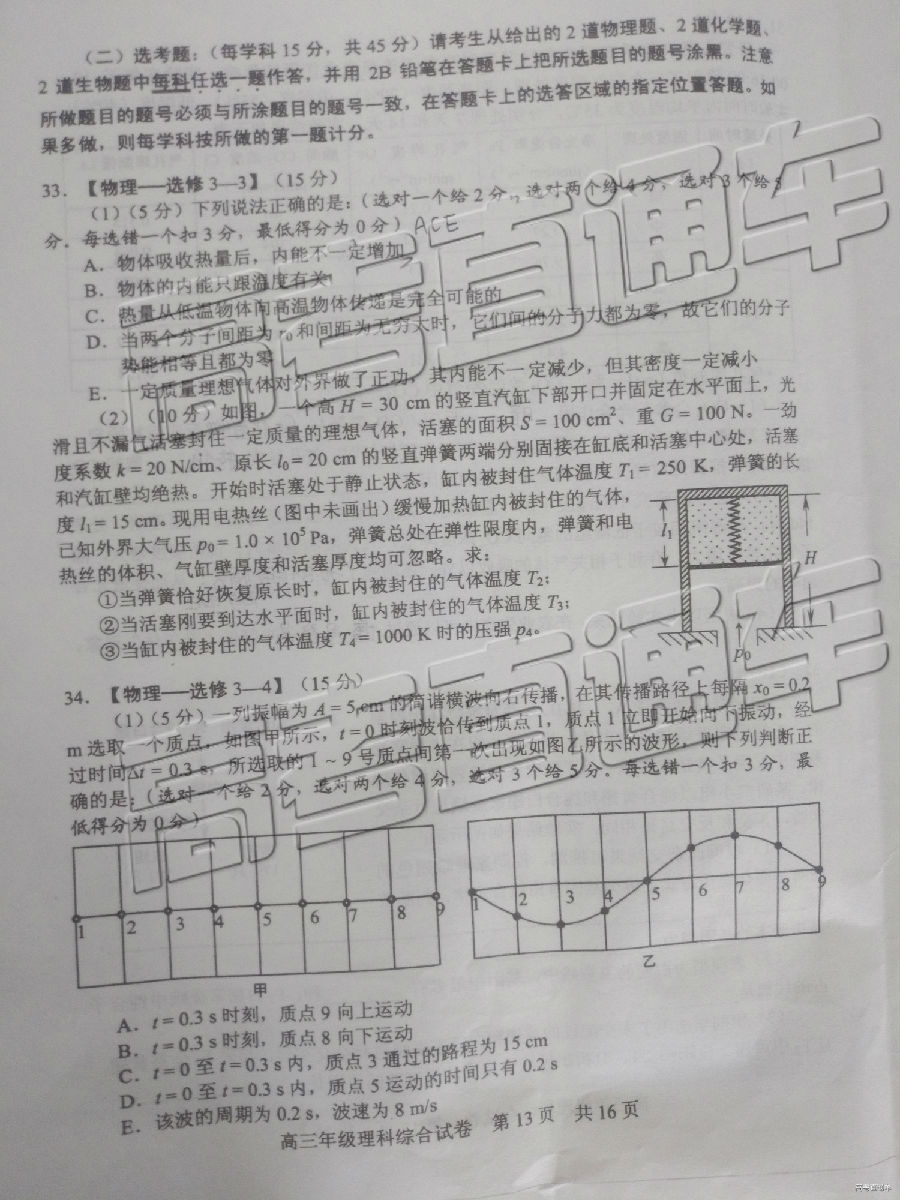 （二）选考题：（每学科 15 分，共 45 分）请考生从给出的 2 道物理题、2 道化学题、
2 道生物题中每科任选一题作答，并用 2B 铅笔在答题卡上把所选题目的题号涂黑。注意
所做题目的题号必须与所涂题目的题号一致，在答题卡上的选答区域的指定位置答题。如
果多做，则每学科按所做的第一题计分。
33．【物理──选修 3—3】（15 分）
（1）（5 分）下列说法正确的是：（选对一个给 2 分，选对两个给 4 分，选对 3 个给 5
分．每选错一个扣 3 分，最低得分为 0 分）ACE
A．物体吸收热量后，内能不一定增加
B．物体的内能只跟温度有关
C．热量从低温物体向高温物体传递是完全可能的
D．当两个分子间距为 r₀ 和间距为无穷大时，它们间的分子力都为零，故它们的分子
势能相等且都为零
E．一定质量理想气体对外界做了正功，其内能不一定减少，但其密度一定减小
（2）（10 分）如图，一个高 H = 30 cm 的竖直汽缸下部开口并固定在水平面上，光
滑且不漏气活塞封住一定质量的理想气体，活塞的面积 S = 100 cm²、重 G = 100 N。一劲
度系数 k = 20 N/cm、原长 l₀ = 20 cm 的竖直弹簧两端分别固接在缸底和活塞中心处，活塞
和汽缸壁均绝热。开始时活塞处于静止状态，缸内被封住气体温度 T₁ = 250 K，弹簧的长
度 l₁ = 15 cm。现用电热丝（图中未画出）缓慢加热缸内被封住的气体，
已知外界大气压 p₀ = 1.0 × 10⁵ Pa，弹簧总处在弹性限度内，弹簧和电
热丝的体积、气缸壁厚度和活塞厚度均可忽略。求：
①当弹簧恰好恢复原长时，缸内被封住的气体温度 T₂；
②当活塞刚要到达水平面时，缸内被封住的气体温度 T₃；
③当缸内被封住的气体温度 T₄ = 1000 K 时的压强 p₄。
l₁
H
p₀
34．【物理──选修 3—4】（15 分）
（1）（5 分）一列振幅为 A = 5 cm 的简谐横波向右传播，在其传播路径上每隔 x₀ = 0.2
m 选取一个质点，如图甲所示，t = 0 时刻波恰传到质点 1，质点 1 立即开始向下振动，经
过时间Δt = 0.3 s，所选取的 1 ~ 9 号质点间第一次出现如图乙所示的波形，则下列判断正
确的是：（选对一个给 2 分，选对两个给 4 分，选对 3 个给 5 分。每选错一个扣 3 分，最
低得分为 0 分）
1 2 3 4 5 6 7 8 9
甲
1 2 3 4 5 6 7 8 9
乙
A．t = 0.3 s 时刻，质点 9 向上运动
B．t = 0.3 s 时刻，质点 8 向下运动
C．t = 0 至 t = 0.3 s 内，质点 3 通过的路程为 15 cm
D．t = 0 至 t = 0.3 s 内，质点 5 运动的时间只有 0.2 s
E．该波的周期为 0.2 s，波速为 8 m/s
高三年级理科综合试卷 第 13 页 共 16 页
高考直通车
高考直通车